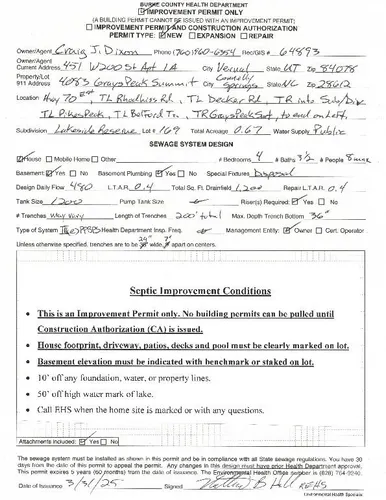 BURKE COUNTY HEALTH DEPARTMENT
☑ IMPROVEMENT PERMIT ONLY
(A BUILDING PERMIT CANNOT BE ISSUED WITH AN IMPROVEMENT PERMIT)
☐ IMPROVEMENT PERMIT AND CONSTRUCTION AUTHORIZATION
PERMIT TYPE: ☑ NEW ☐ EXPANSION ☐ REPAIR
Owner/Agent Craig J. Dixon Phone (760) 960-6354 Rec/GIS # 64893
Owner/Agent Current Address 451 W 200 St Apt 1A City Vernal State UT Zip 84078
Property/Lot 911 Address 4083 Grays Peak Summit City Connelly Springs State NC Zip 28612
Location Hwy 70 East, TL Rhodhiss Rd, TL Decker Rd, TR into Sub/Div
TL Pikes Peak, TL Belford Tr., TR Grays Peak Smt, to end on Left.
Subdivision Lakeside Reserve Lot # 169 Total Acreage 0.67 Water Supply Public
SEWAGE SYSTEM DESIGN
☑ House ☐ Mobile Home ☐ Other # Bedrooms 4 # Baths 3 1/2 # People 8 max
Basement ☑ Yes ☐ No Basement Plumbing ☑ Yes ☐ No Special Fixtures Disposal
Design Daily Flow 480 L.T.A.R. 0.4 Total Sq. Ft. Drainfield 1,200 Repair L.T.A.R. 0.4
Tank Size 1200 Pump Tank Size Riser(s) Required: ☑ Yes ☐ No
# Trenches May Vary Length of Trenches 200' total Max. Depth Trench Bottom 36"
Type of System PPBPS Health Department Insp. Freq. Management Entity: ☑ Owner ☐ Cert. Operator
Unless otherwise specified, trenches are to be 25" wide, 7' apart on centers.
Septic Improvement Conditions
• This is an Improvement Permit only. No building permits can be pulled until
Construction Authorization (CA) is issued.
• House footprint, driveway, patios, decks and pool must be clearly marked on lot.
• Basement elevation must be indicated with benchmark or staked on lot.
• 10' off any foundation, water, or property lines.
• 50' off high water mark of lake.
• Call EHS when the home site is marked or with any questions.
Attachments Included: ☑ Yes ☐ No
The sewage system must be installed as shown in this permit and be in compliance with all State sewage regulations. You have 30
days from the date of this permit to appeal the permit. Any changes in this design must have prior Health Department approval.
This permit expires 5 years (60 months) from the date of issuance. The Environmental Health Office number is (828) 764-9240.
Date of Issuance 3/31/25 Signed B. Hill REHS
Environmental Health Specialist